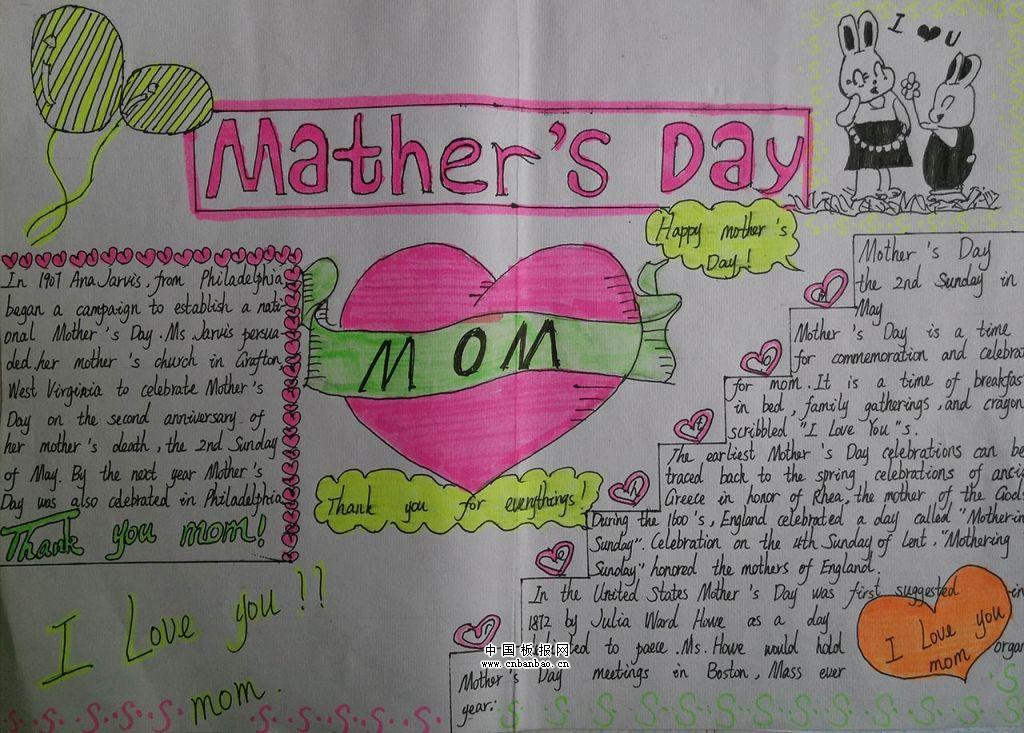 Mather's Day
I ❤ U
Happy mother's
Day!
In 1907 Ana Jarvis, from Philadelphia,
began a campaign to establish a nati-
onal Mother's Day. Ms. Jarvis persua-
ded her mother's church in Grafton,
West Virginia to celebrate Mother's
Day on the second anniversary of
her mother's death, the 2nd Sunday
of May. By the next year Mother's
Day was also celebrated in Philadelphia
Thank you mom!
MOM
Thank you for everythings!
I Love you!!
mom.
Mother's Day
the 2nd Sunday in
May
Mother's Day is a time
for commemoration and celebra
for mom. It is a time of breakfas
in bed, family gatherings, and crayon
scribbled "I Love You"s.
The earliest Mother's Day celebrations can be
traced back to the spring celebrations of anci
Greece in honor of Rhea, the mother of the Gods
During the 1600's, England celebrated a day called "Motherin
Sunday". Celebration on the 4th Sunday of Lent. "Mothering
Sunday" honored the mothers of England.
In the United States Mother's Day was first suggested in
1872 by Julia Ward Howe as a day
to paece. Ms. Howe would hold organ
Mother's Day meetings in Boston, Mass ever
year.
I Love you
mom
中国板报网
www.cnbanbao.cn